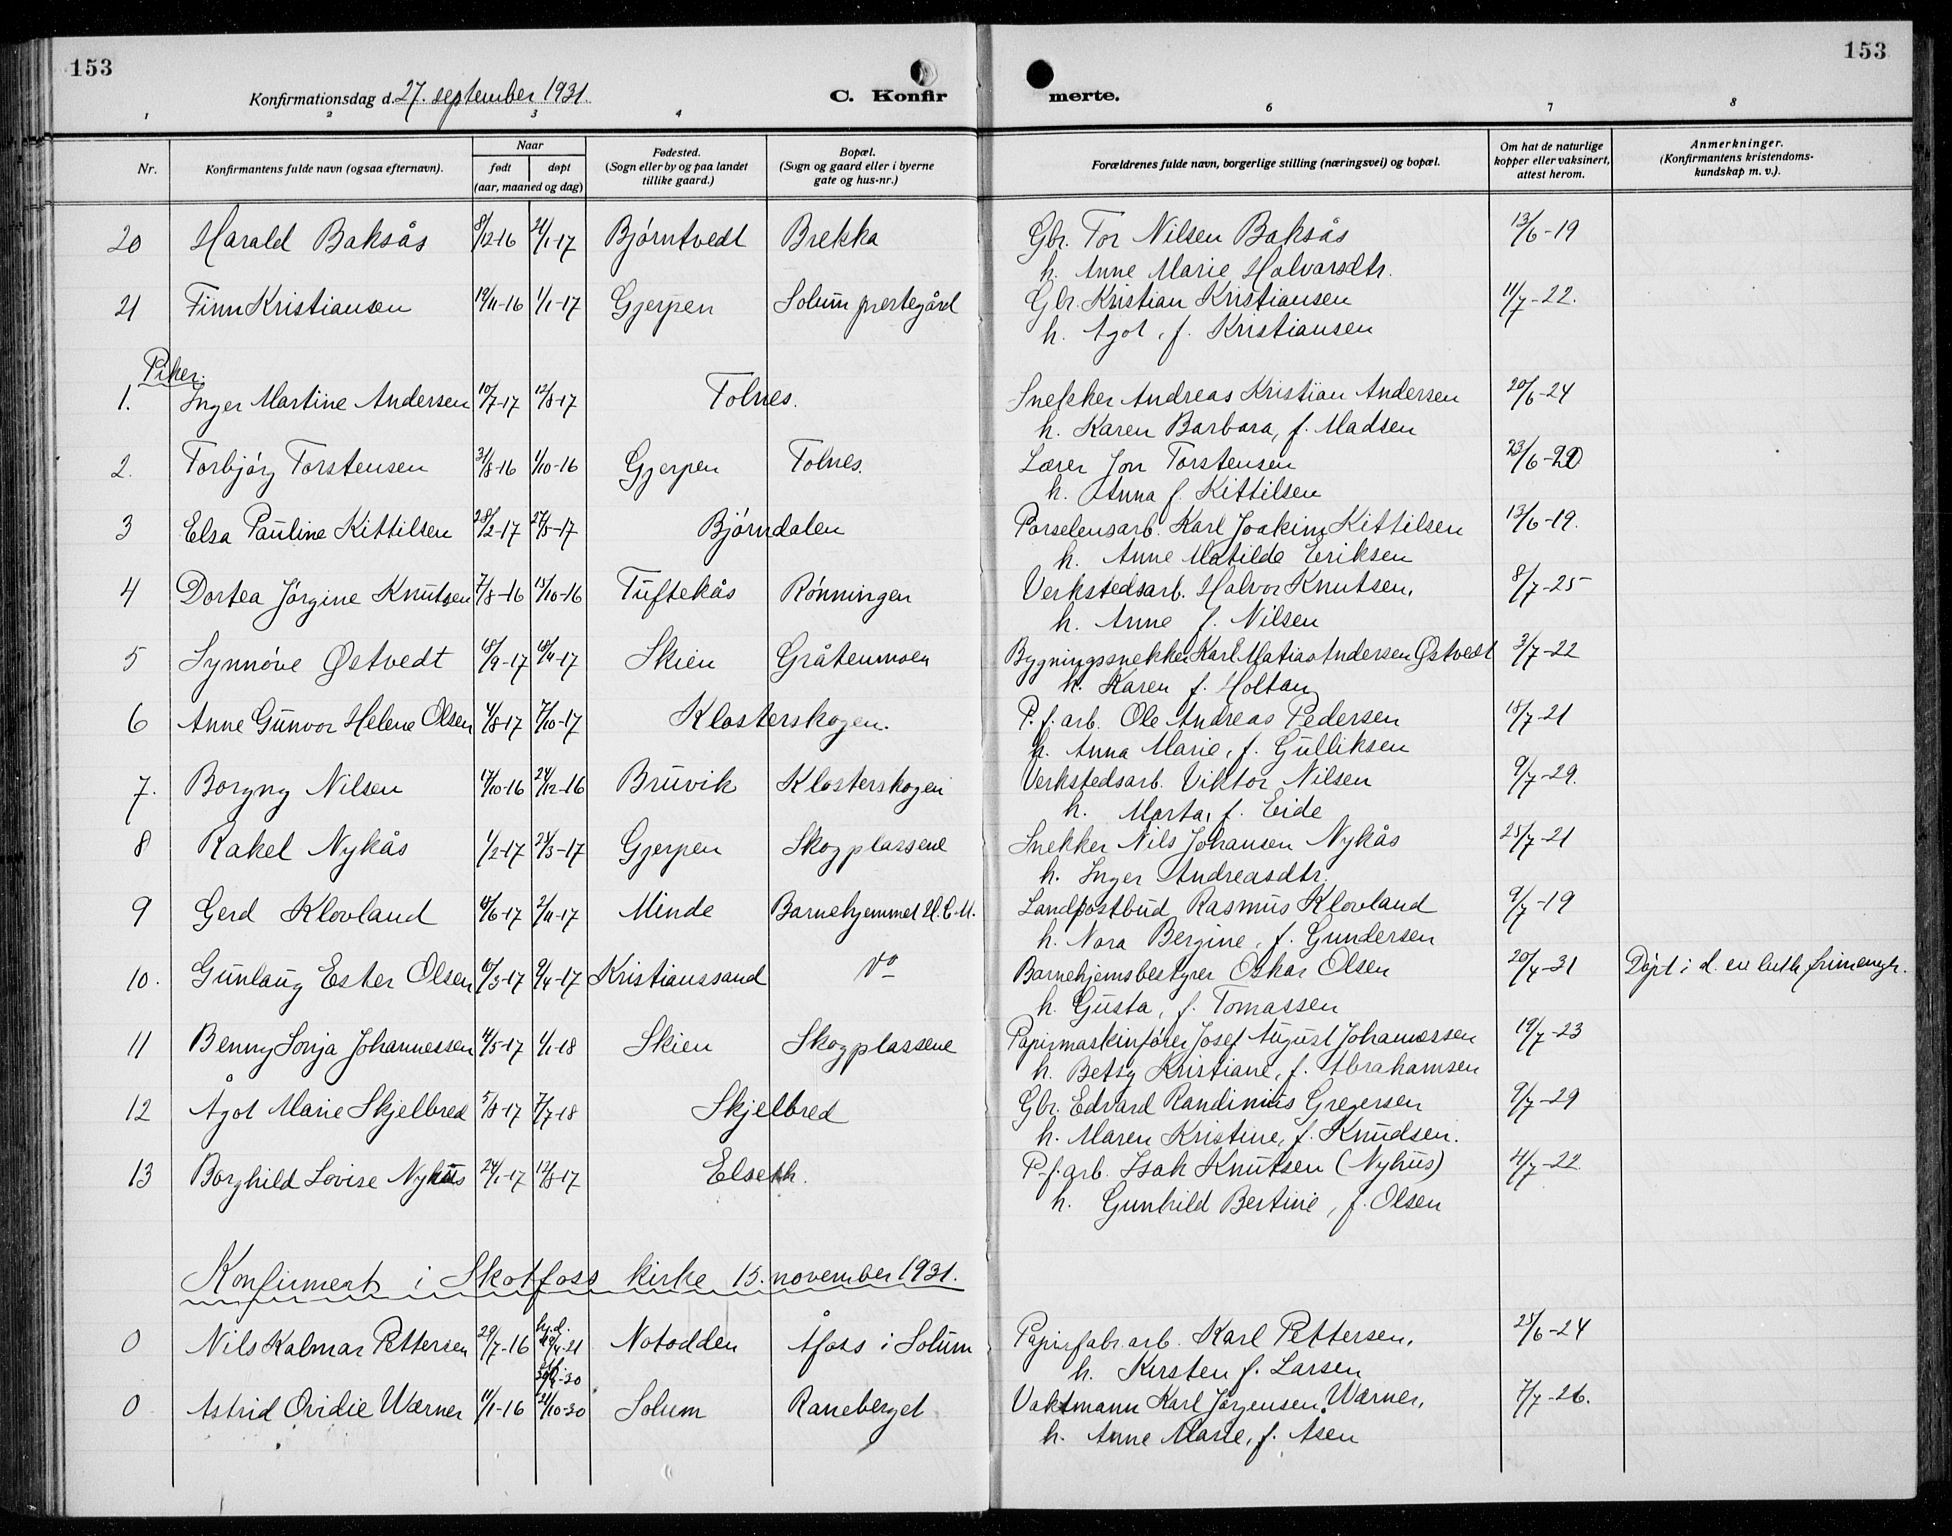 153
153
Konfirmationsdag d. 27. september 1931.
C. Konfir
merte.
1 2 3 4 6 7 8
Nr.
Konfirmantens fulde navn (ogsaa efternavn).
Naar
født
døpt
(aar, maaned og dag)
Fødested.
(Sogn eller by og paa landet
tillike gaard.)
Bopæl.
(Sogn og gaard eller i byerne
gate og hus-nr.)
Forældrenes fulde navn, borgerlige stilling (næringsvei) og bopæl.
Om hat de naturlige
kopper eller vaksinert,
attest herom.
Anmerkninger.
(Konfirmantens kristendoms-
kundskap m. v.).
20 Harald Baksås 8/12-16 21/1-17 Bjørntvedt Brekka Gbr. Tor Nilsen Baksås 13/6-19
h. Anne Marie Halvarsdtr.
21 Finn Kristiansen 19/11-16 1/1-17 Gjerpen Solum prestegård Gbr. Kristian Kristiansen 11/7-22.
h. Agot, f. Kristiansen
Piker.
1. Inger Martine Andersen 10/7-17 12/8-17 Tolnes. Snekker Andreas Kristian Andersen 20/6-24
h. Karen Barbara, f. Madsen
2. Torbjörg Torstensen 31/8-16 1/10-16 Gjerpen Tolnes. Lærer Jon Torstensen 23/6-20
h. Anna f. Kittilsen
3 Elsa Pauline Kittilsen 28/2-17 27/5-17 Bjørndalen Porselensarb. Karl Joakim Kittilsen 13/6-19.
h. Anne Matilde Eriksen
4 Dortea Jörgine Knutsen 7/8-16 15/10-16 Tuftekås Rønningen Verkstedsarb. Halvor Knutsen, 8/7-25
h. Anne f. Nilsen
5 Synnöve Østvedt Skien Gråtenmoen Bygningssnekker Karl Matias Andersen Østvedt 3/7-22
h. Karen f. Holtan
6 Anne Gunvor Helene Olsen 4/8-17 7/10-17 Klosterskogen. P.f.arb. Ole Andreas Pedersen 18/7-21
h. Anna Marie, f. Gulliksen
7. Borgny Nilsen 17/10-16 24/12-16 Bruvik Klosterskogen Verkstedsarb. Viktor Nilsen 9/7-29.
h. Marta, f. Eide
8 Rakel Nykås 1/2-17 25/3-17 Gjerpen Skogplassene Snekker Nils Johansen Nykås 25/7-21
h. Inger Andreasdtr.
9 Gerd Klovland 2/11-17 Minde Barnehjemmet U.C.M. Landpostbud Rasmus Klovland 9/7-19
h. Nora Bergine, f. Gundersen
10. Gunlaug Ester Olsen 9/4-17 Kristianssand Do Barnehjemsbestyrer Oskar Olsen 20/4-31 Døpt i d. ev. luth. frimenigh.
h. Gusta, f. Tomassen
11 Benny Sonja Johannessen 4/5-17 1/1-18 Skien Skogplassene Papirmaskinfører Josef August Johannessen 19/7-23
h. Betsy Kristiane, f. Abrahamsen
12 Ågot Marie Skjelbred 5/8-17 7/7-18 Skjelbred Gbr. Edvard Randinius Gregersen 9/7-29
h. Maren Kristine, f. Knudsen.
13 Borghild Lovise Nyhus 24/1-17 12/8-17 Elsekk. P.f.arb. Isak Knutsen (Nyhus) 4/7-22
h. Gunhild Bertine, f. Olsen
Konfirmert i Skotfoss kirke 15. november 1931.
0 Nils Kalmar Pettersen 29/7-16 hj.d. Notodden Åfoss i Solum Papirfabr.arb. Karl Pettersen, 25/6-24
h. Kirsten f. Larsen
0 Astrid Ovidie Wærner 11/1-16 21/10-30 Solum Raneberget Vaktmann Karl Jørgensen Wærner, 7/7-26.
h. Anne Marie, f. Åsen